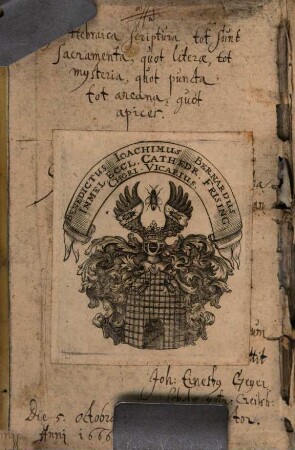 Hebraica Scriptura tot sunt
Sacramenta, quot literæ, tot
mysteria, quot puncta
tot arcana, quot
apices.
BENEDICTUS IOACHIMUS BERNARDUS
IMMEL ECCL. CATHEDR. FRISING
CHORI. VICARIUS.
um
Joh: Ernesty Geyer
Die 5. octobr
tor.
Anni 1666